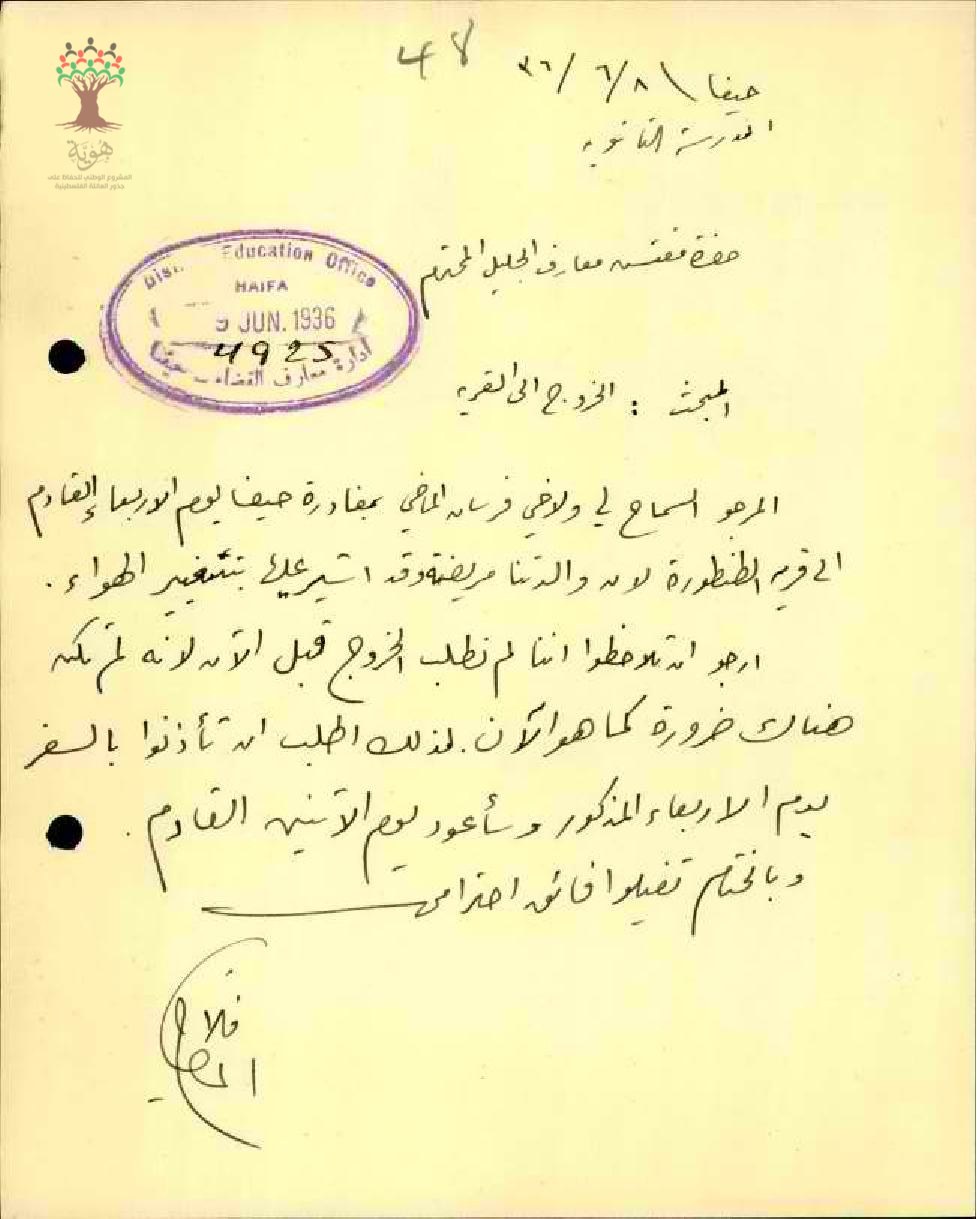 ٤٨
حيفا \ ٨/ ٦/ ٣٦
المدرسة الثانويه
هوية
المشروع الوطني للحفاظ على
جذور العائلة الفلسطينية
حضرة مفتش معارف الجليل المحترم
Education Office
HAIFA
9 JUN. 1936
4925
ادارة معارف القضاء حيفا
المبحث : الخروج الى القريه
المرجو السماح لي ولاخي فرسان الماضي بمغادرة حيفا يوم الاربعاء القادم
الى قريه الطنطورة لان والدتنا مريضة وقد اشير عليها بتغيير الهواء .
ارجو ان تلاحظوا اننا لم نطلب الخروج قبل الآن لانه لم تكن
هناك ضرورة كما هو الآن . لذلك اطلب ان تأذنوا بالسفر
يوم الاربعاء المذكور وسأعود يوم الاثنين القادم .
وبالختام تفضلوا فائق احترامي
فلاح
الماضي